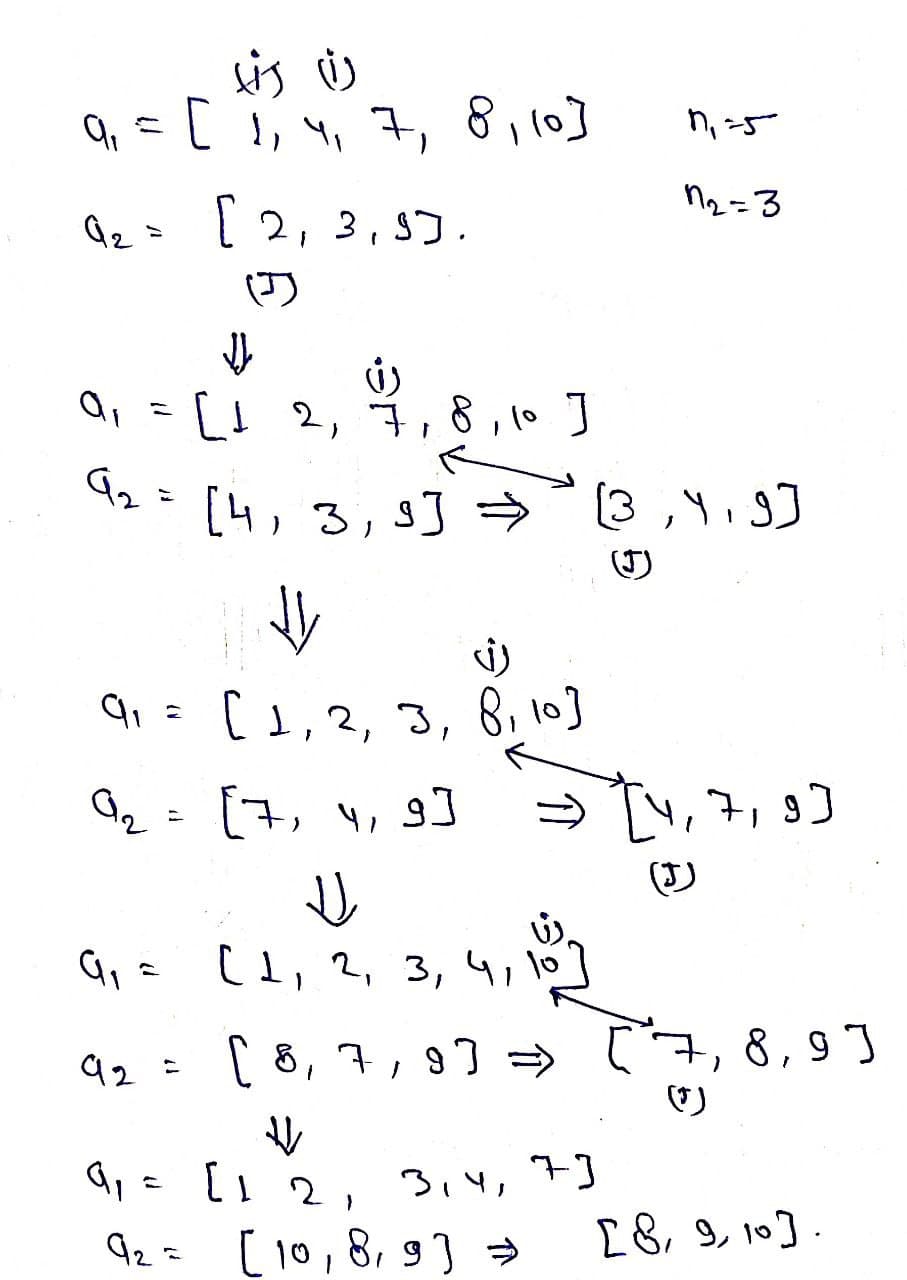 (i) (i)
a₁ = [ 1, 4, 7, 8, 10] n₁=5
n₂=3
a₂ = [ 2, 3, 9].
(J)
⇓
(i)
a₁ = [1 2, 7, 8, 10 ]
a₂ = [4, 3, 9] ⇒ [3, 4, 9]
(J)
⇓
(i)
a₁ = [ 1, 2, 3, 8, 10]
a₂ = [7, 4, 9] ⇒ [4, 7, 9]
(J)
⇓
(i)
a₁ = [1, 2, 3, 4, 10]
a₂ = [ 8, 7, 9] ⇒ [7, 8, 9]
(J)
⇓
a₁ = [1 2, 3, 4, 7]
a₂ = [ 10, 8, 9] ⇒ [8, 9, 10].